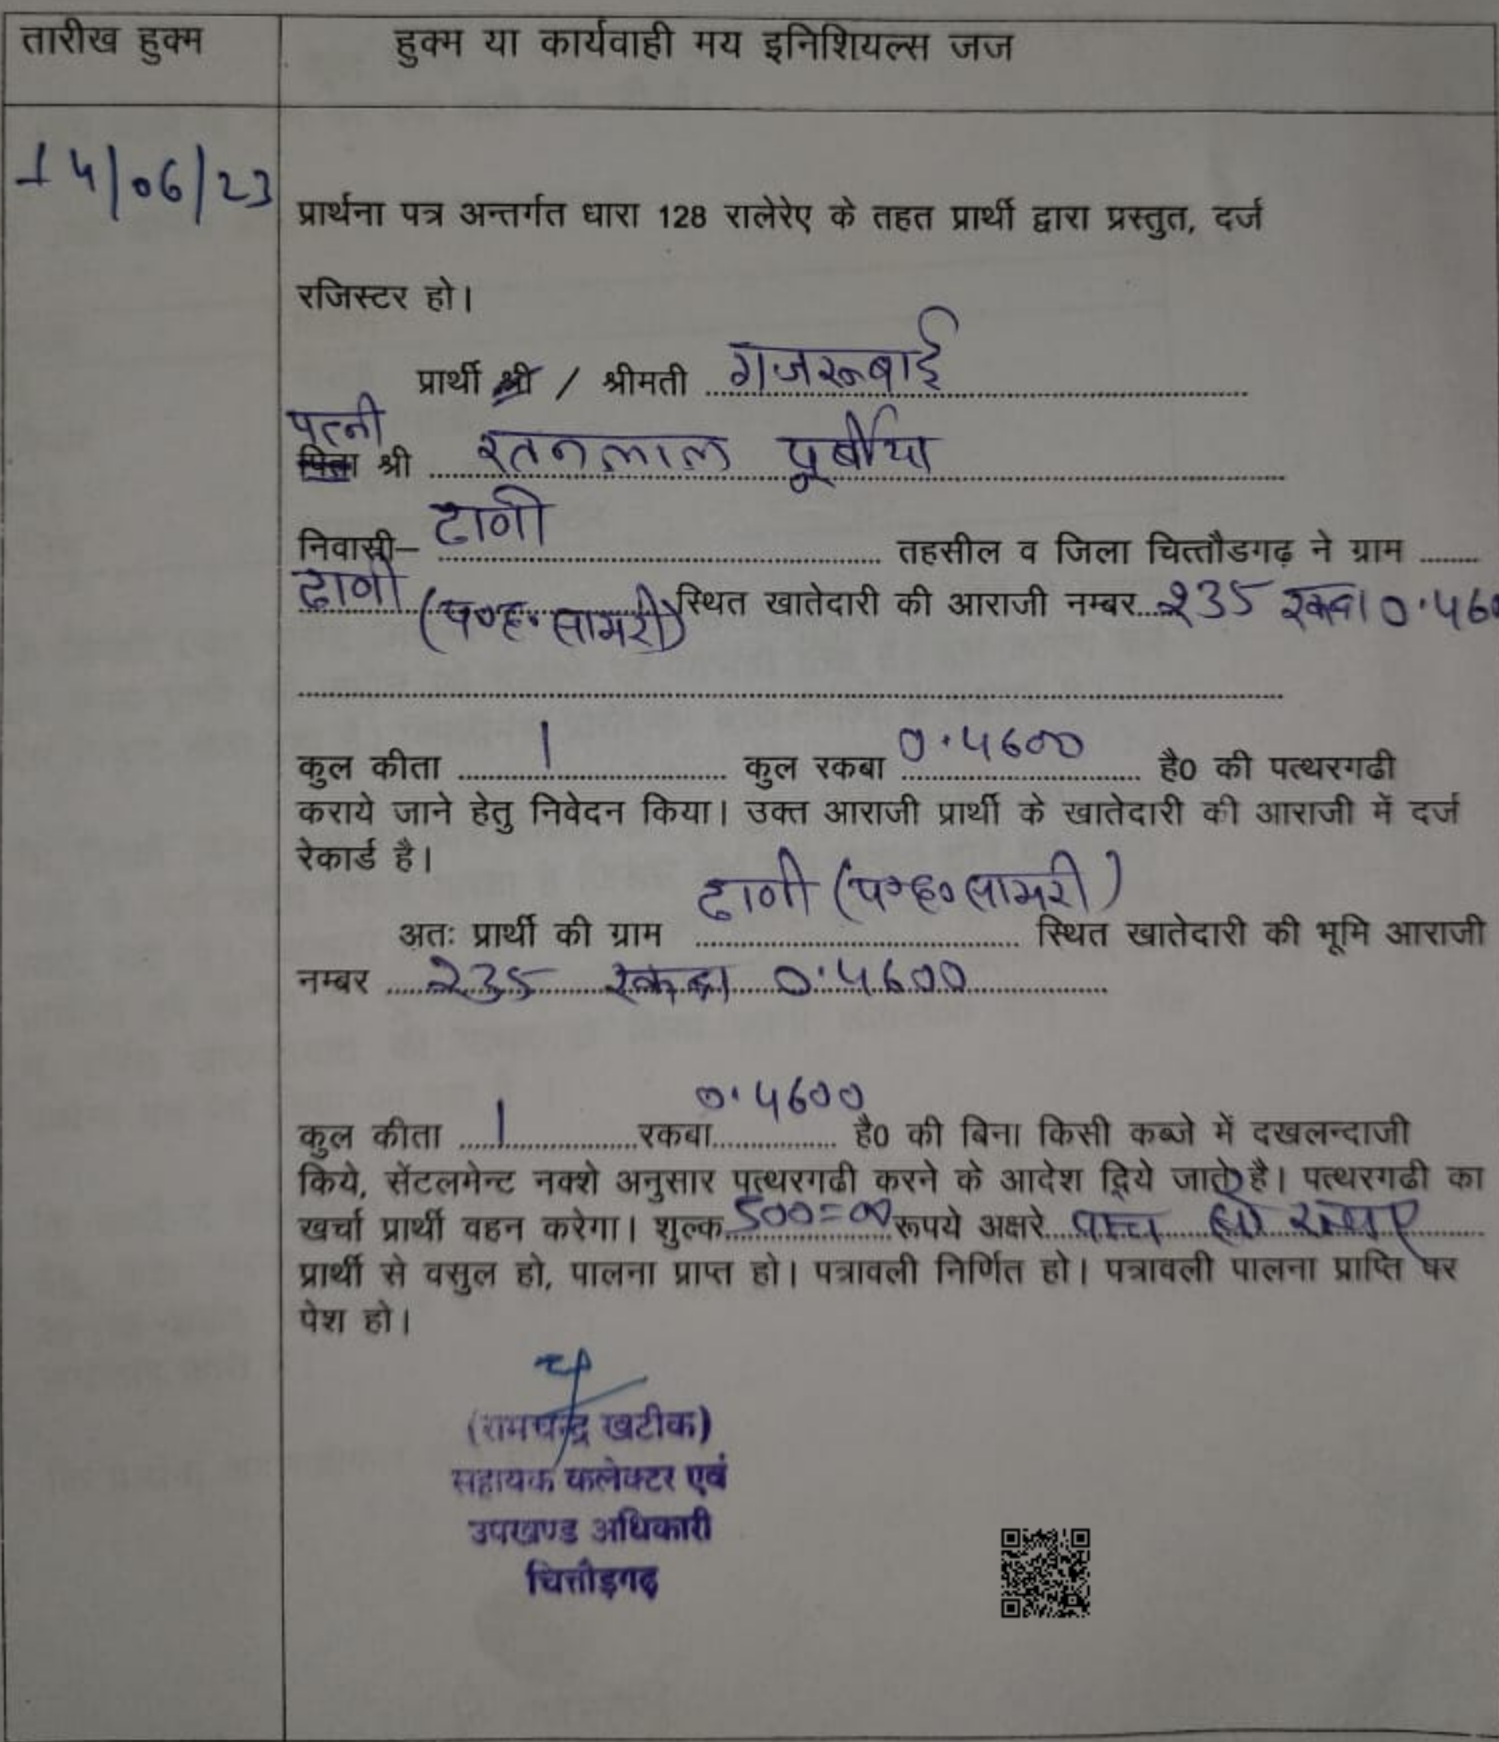 तारीख हुक्म
हुक्म या कार्यवाही मय इनिशियल्स जज
14/06/23
प्रार्थना पत्र अन्तर्गत धारा 128 रालेरेए के तहत प्रार्थी द्वारा प्रस्तुत, दर्ज
रजिस्टर हो।
प्रार्थी श्री / श्रीमती गजरूबाई
पत्नी
पिता श्री रतनलाल पूर्बीया
निवासी– ढाणी तहसील व जिला चित्तौडगढ़ ने ग्राम
ढाणी (प०ह० सामरी) स्थित खातेदारी की आराजी नम्बर 235 रकबा 0.460
कुल कीता 1 कुल रकबा 0.4600 है0 की पत्थरगढी
कराये जाने हेतु निवेदन किया। उक्त आराजी प्रार्थी के खातेदारी की आराजी में दर्ज
रेकार्ड है।
ढाणी (प०ह० सामरी)
अतः प्रार्थी की ग्राम स्थित खातेदारी की भूमि आराजी
नम्बर 235 रकबा 0.4600
कुल कीता 1 रकबा 0.4600 है0 की बिना किसी कब्जे में दखलन्दाजी
किये, सेंटलमेन्ट नक्शे अनुसार पत्थरगढी करने के आदेश दिये जाते है। पत्थरगढी का
खर्चा प्रार्थी वहन करेगा। शुल्क 500=00 रूपये अक्षरे पांच सौ रूपए
प्रार्थी से वसुल हो, पालना प्राप्त हो। पत्रावली निर्णित हो। पत्रावली पालना प्राप्ति पर
पेश हो।
(रामचन्द्र खटीक)
सहायक कलेक्टर एवं
उपखण्ड अधिकारी
चित्तौड़गढ़